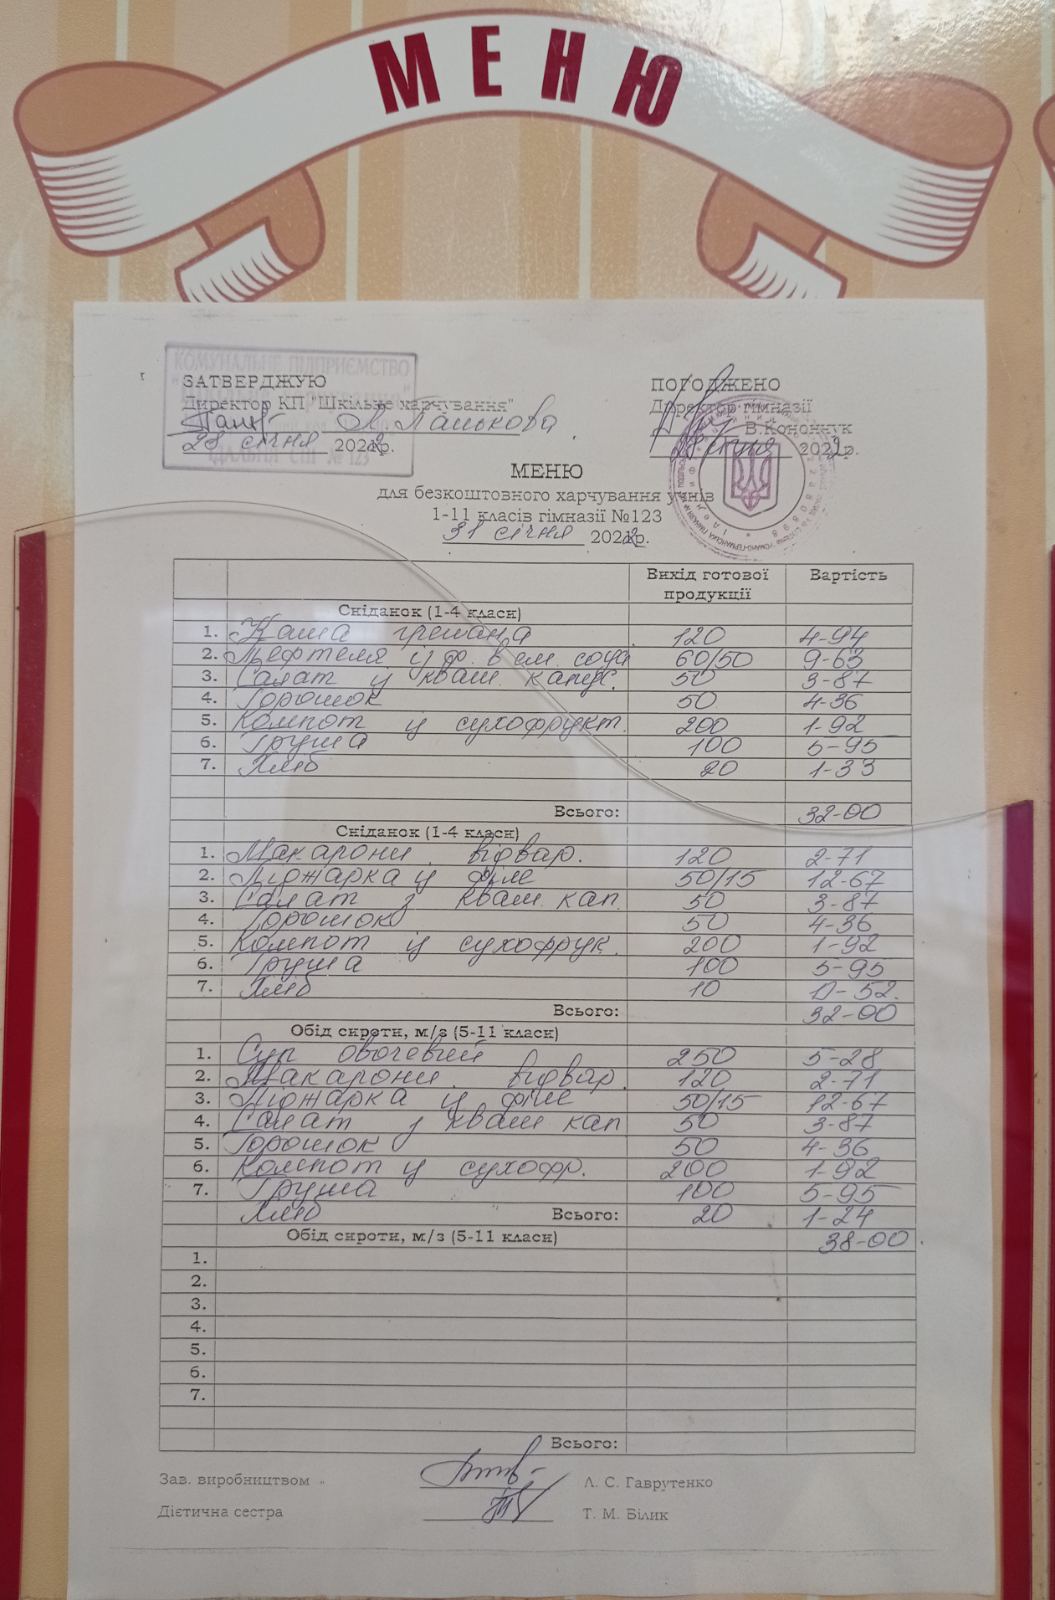 МЕНЮ
КОМУНАЛЬНЕ ПІДПРИЄМСТВО
ЗАТВЕРДЖУЮ
Директор КП "Шкільне харчування"
Л. Панькова
28 січня 2022р.
ЇДАЛЬНЯ СШ №123
ПОГОДЖЕНО
Директор гімназії
В.Конончук
28 січня 2022р.
МЕНЮ
для безкоштовного харчування учнів
1-11 класів гімназії №123
31 січня 2022р.
Вихід готової продукції Вартість
Сніданок (1-4 класи)
1. Каша гречана 120 4-94
2. Тефтеля із ф. в см. соусі 60/50 9-63
3. Салат із кваш. капус. 50 3-87
4. Горошок 50 4-36
5. Компот із сухофрукт. 200 1-92
6. Груша 100 5-95
7. Хліб 20 1-33
Всього: 32-00
Сніданок (1-4 класи)
1. Макарони відвар. 120 2-71
2. Піджарка із філе 50/15 12-67
3. Салат з кваш. кап. 50 3-87
4. Горошок 50 4-36
5. Компот із сухофрук. 200 1-92
6. Груша 100 5-95
7. Хліб 10 0-52.
Всього: 32-00
Обід сироти, м/з (5-11 класи)
1. Суп овочевий 250 5-28
2. Макарони відвар. 120 2-71
3. Піджарка із філе 50/15 12-67
4. Салат з кваш кап 50 3-87
5. Горошок 50 4-36
6. Компот із сухофр. 200 1-92
7. Груша 100 5-95
Хліб Всього: 20 1-24
Обід сироти, м/з (5-11 класи) 38-00.
1.
2.
3.
4.
5.
6.
7.
Всього:
Зав. виробництвом Л. С. Гаврутенко
Дієтична сестра Т. М. Білик